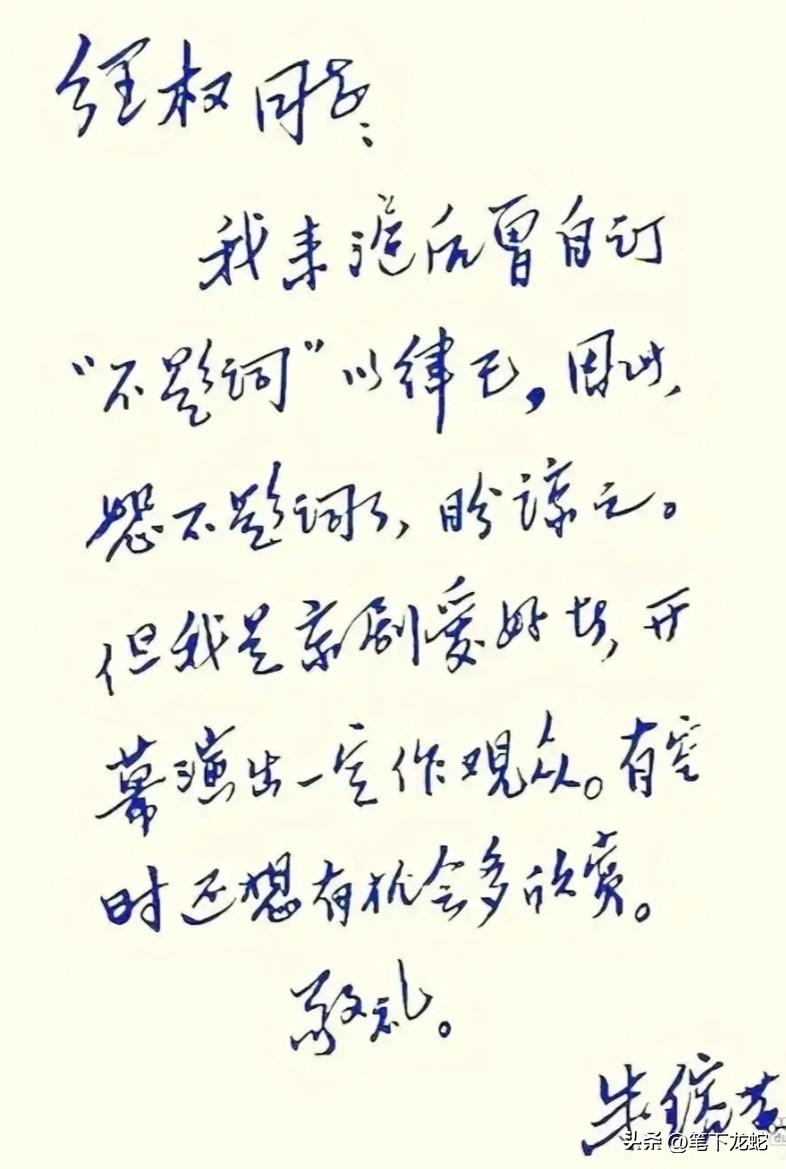 经权同志：
我来沪后曾自订
“不题词”以律已，因此，
恕不题词了，盼谅之。
但我是京剧爱好者，开
幕演出一定作观众。有空
时还想有机会多欣赏。
敬礼。
朱镕基
头条 @笔下龙蛇